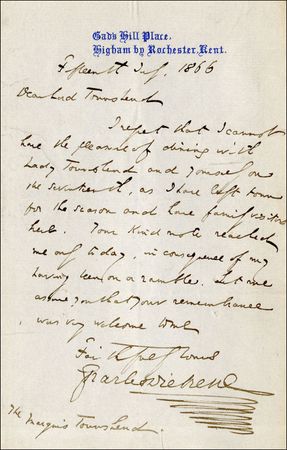 Gad's Hill Place,
Higham by Rochester, Kent.
Fifteenth July, 1866
Dear Lord Townshend
I regret that I cannot
have the pleasure of dining with
Lady Townshend and yourself on
the seventeenth, as I have left town
for the season and have family visitors
here. Your kind note reached
me only today, in consequence of my
having been on a ramble. Let me
assure you that your remembrance
was very welcome to me
Faithfully Yours
Charles Dickens
The Marquis Townshend.